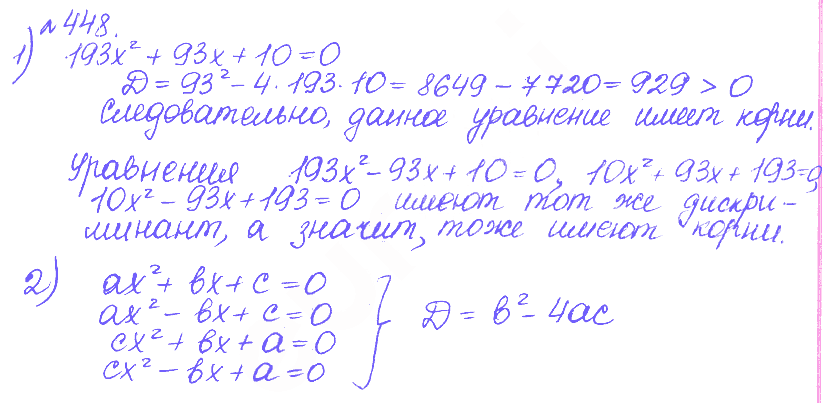 №448.
1) 193x² + 93x + 10 = 0
Д = 93² - 4 · 193 · 10 = 8649 - 7720 = 929 > 0
Следовательно, данное уравнение имеет корни.
Уравнения 193x² - 93x + 10 = 0, 10x² + 93x + 193 = 0,
10x² - 93x + 193 = 0 имеют тот же дискри-
минант, а значит, тоже имеют корни.
2) ax² + bx + c = 0
ax² - bx + c = 0
cx² + bx + a = 0
cx² - bx + a = 0
} Д = b² - 4ac